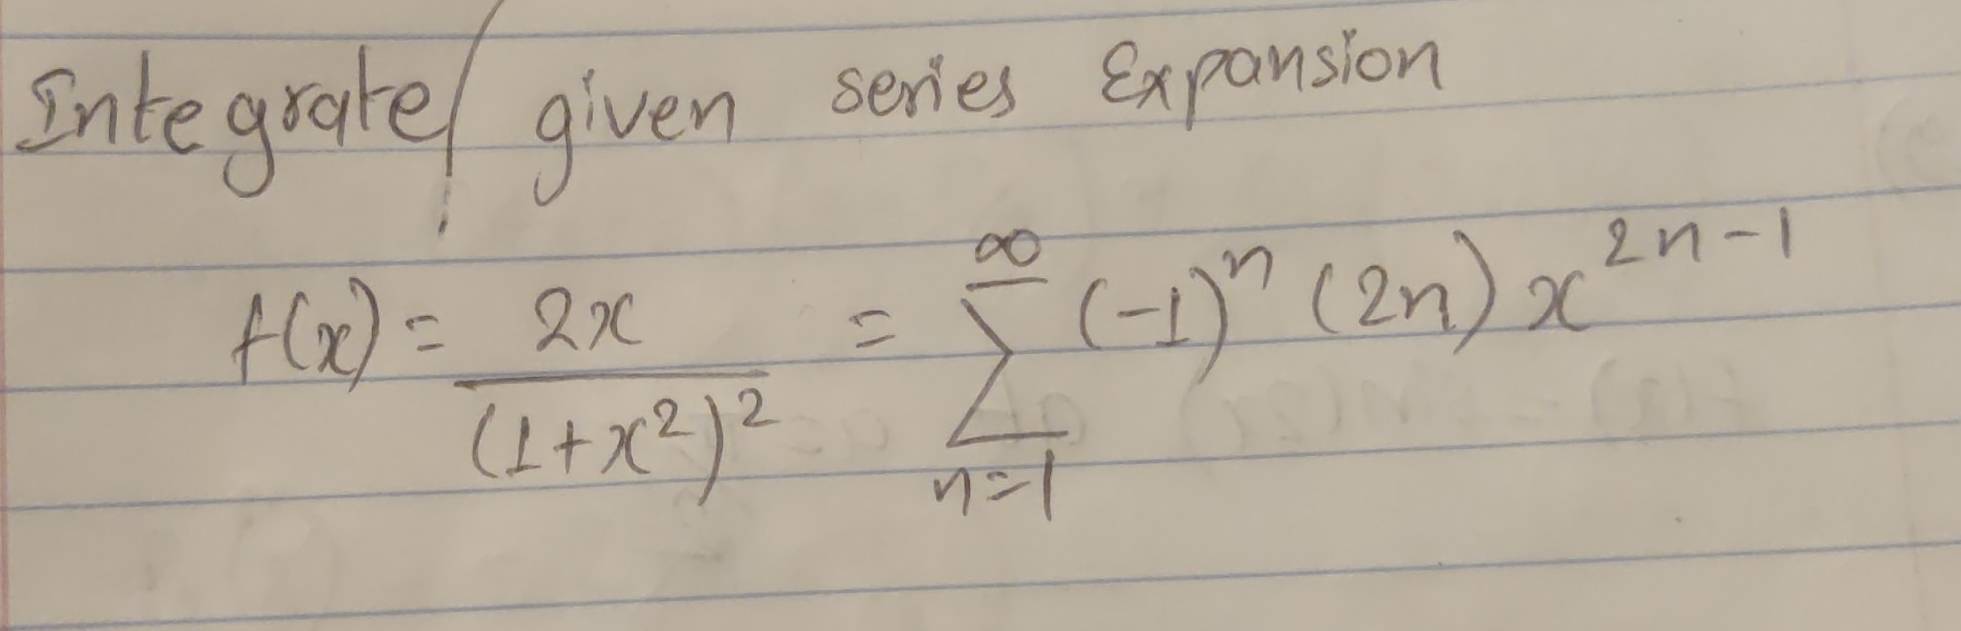 Integrate/ given series Expansion
f(x) = 2x/(1+x²)² = ∞∑n=1 (-1)ⁿ (2n) x²ⁿ⁻¹